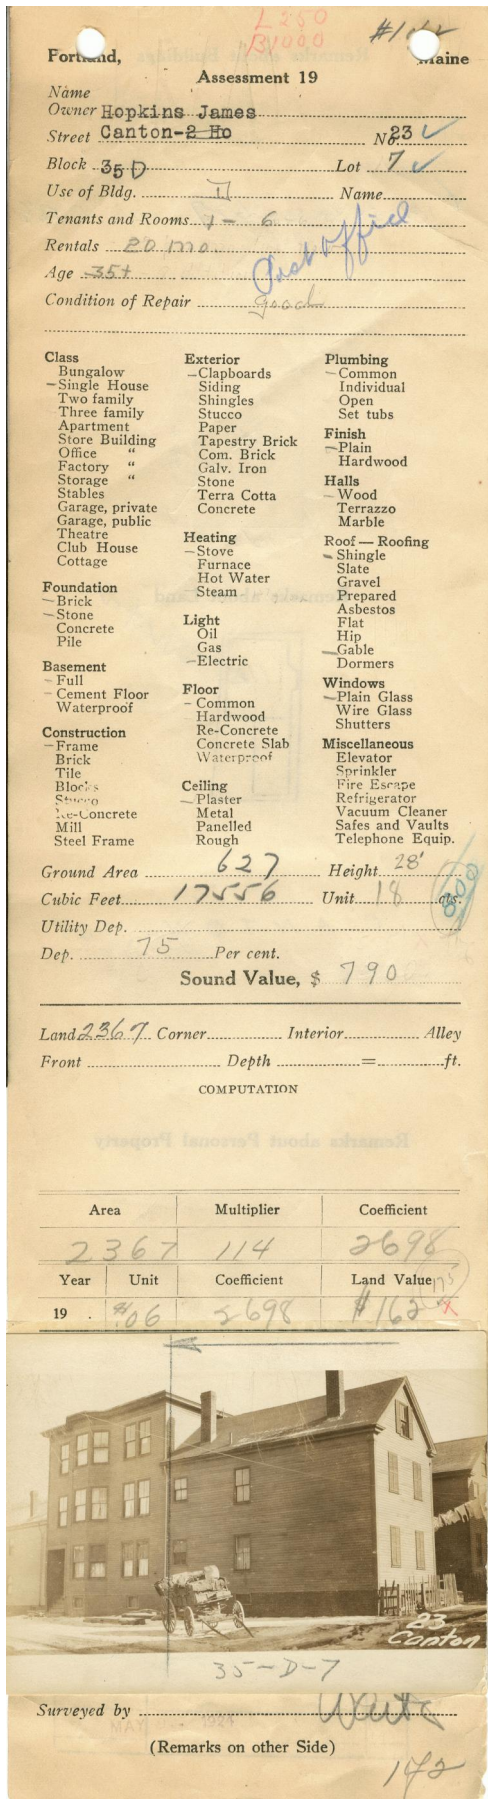 L 250
B1000
Portland, Maine
Assessment 19
Name
Owner Hopkins James
Street Canton-2 Ho No. 23
Block 35 D Lot 7
Use of Bldg. D Name
Tenants and Rooms 1 - 6
Rentals 20 mo
Age 35+
Post office
Condition of Repair good
Class
Bungalow
Single House
Two family
Three family
Apartment
Store Building
Office "
Factory "
Storage "
Stables
Garage, private
Garage, public
Theatre
Club House
Cottage
Foundation
Brick
Stone
Concrete
Pile
Basement
Full
Cement Floor
Waterproof
Construction
Frame
Brick
Tile
Blocks
Stucco
Re-Concrete
Mill
Steel Frame
Exterior
Clapboards
Siding
Shingles
Stucco
Paper
Tapestry Brick
Com. Brick
Galv. Iron
Stone
Terra Cotta
Concrete
Heating
Stove
Furnace
Hot Water
Steam
Light
Oil
Gas
Electric
Floor
Common
Hardwood
Re-Concrete
Concrete Slab
Waterproof
Ceiling
Plaster
Metal
Panelled
Rough
Plumbing
Common
Individual
Open
Set tubs
Finish
Plain
Hardwood
Halls
Wood
Terrazzo
Marble
Roof — Roofing
Shingle
Slate
Gravel
Prepared
Asbestos
Flat
Hip
Gable
Dormers
Windows
Plain Glass
Wire Glass
Shutters
Miscellaneous
Elevator
Sprinkler
Fire Escape
Refrigerator
Vacuum Cleaner
Safes and Vaults
Telephone Equip.
Ground Area 627 Height 28'
Cubic Feet 17556 Unit 18 cts.
800
Utility Dep.
Dep. 75 Per cent.
Sound Value, $ 790
Land 2367 Corner Interior Alley
Front Depth = ft.
COMPUTATION
Area Multiplier Coefficient
2367 114 2698
Year Unit Coefficient Land Value
175
19 . $.06 2698 $162 x
23
Canton
35-D-7
Surveyed by Waite
(Remarks on other Side)
172